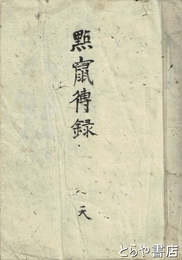 點竄傳録
天
とらや書店